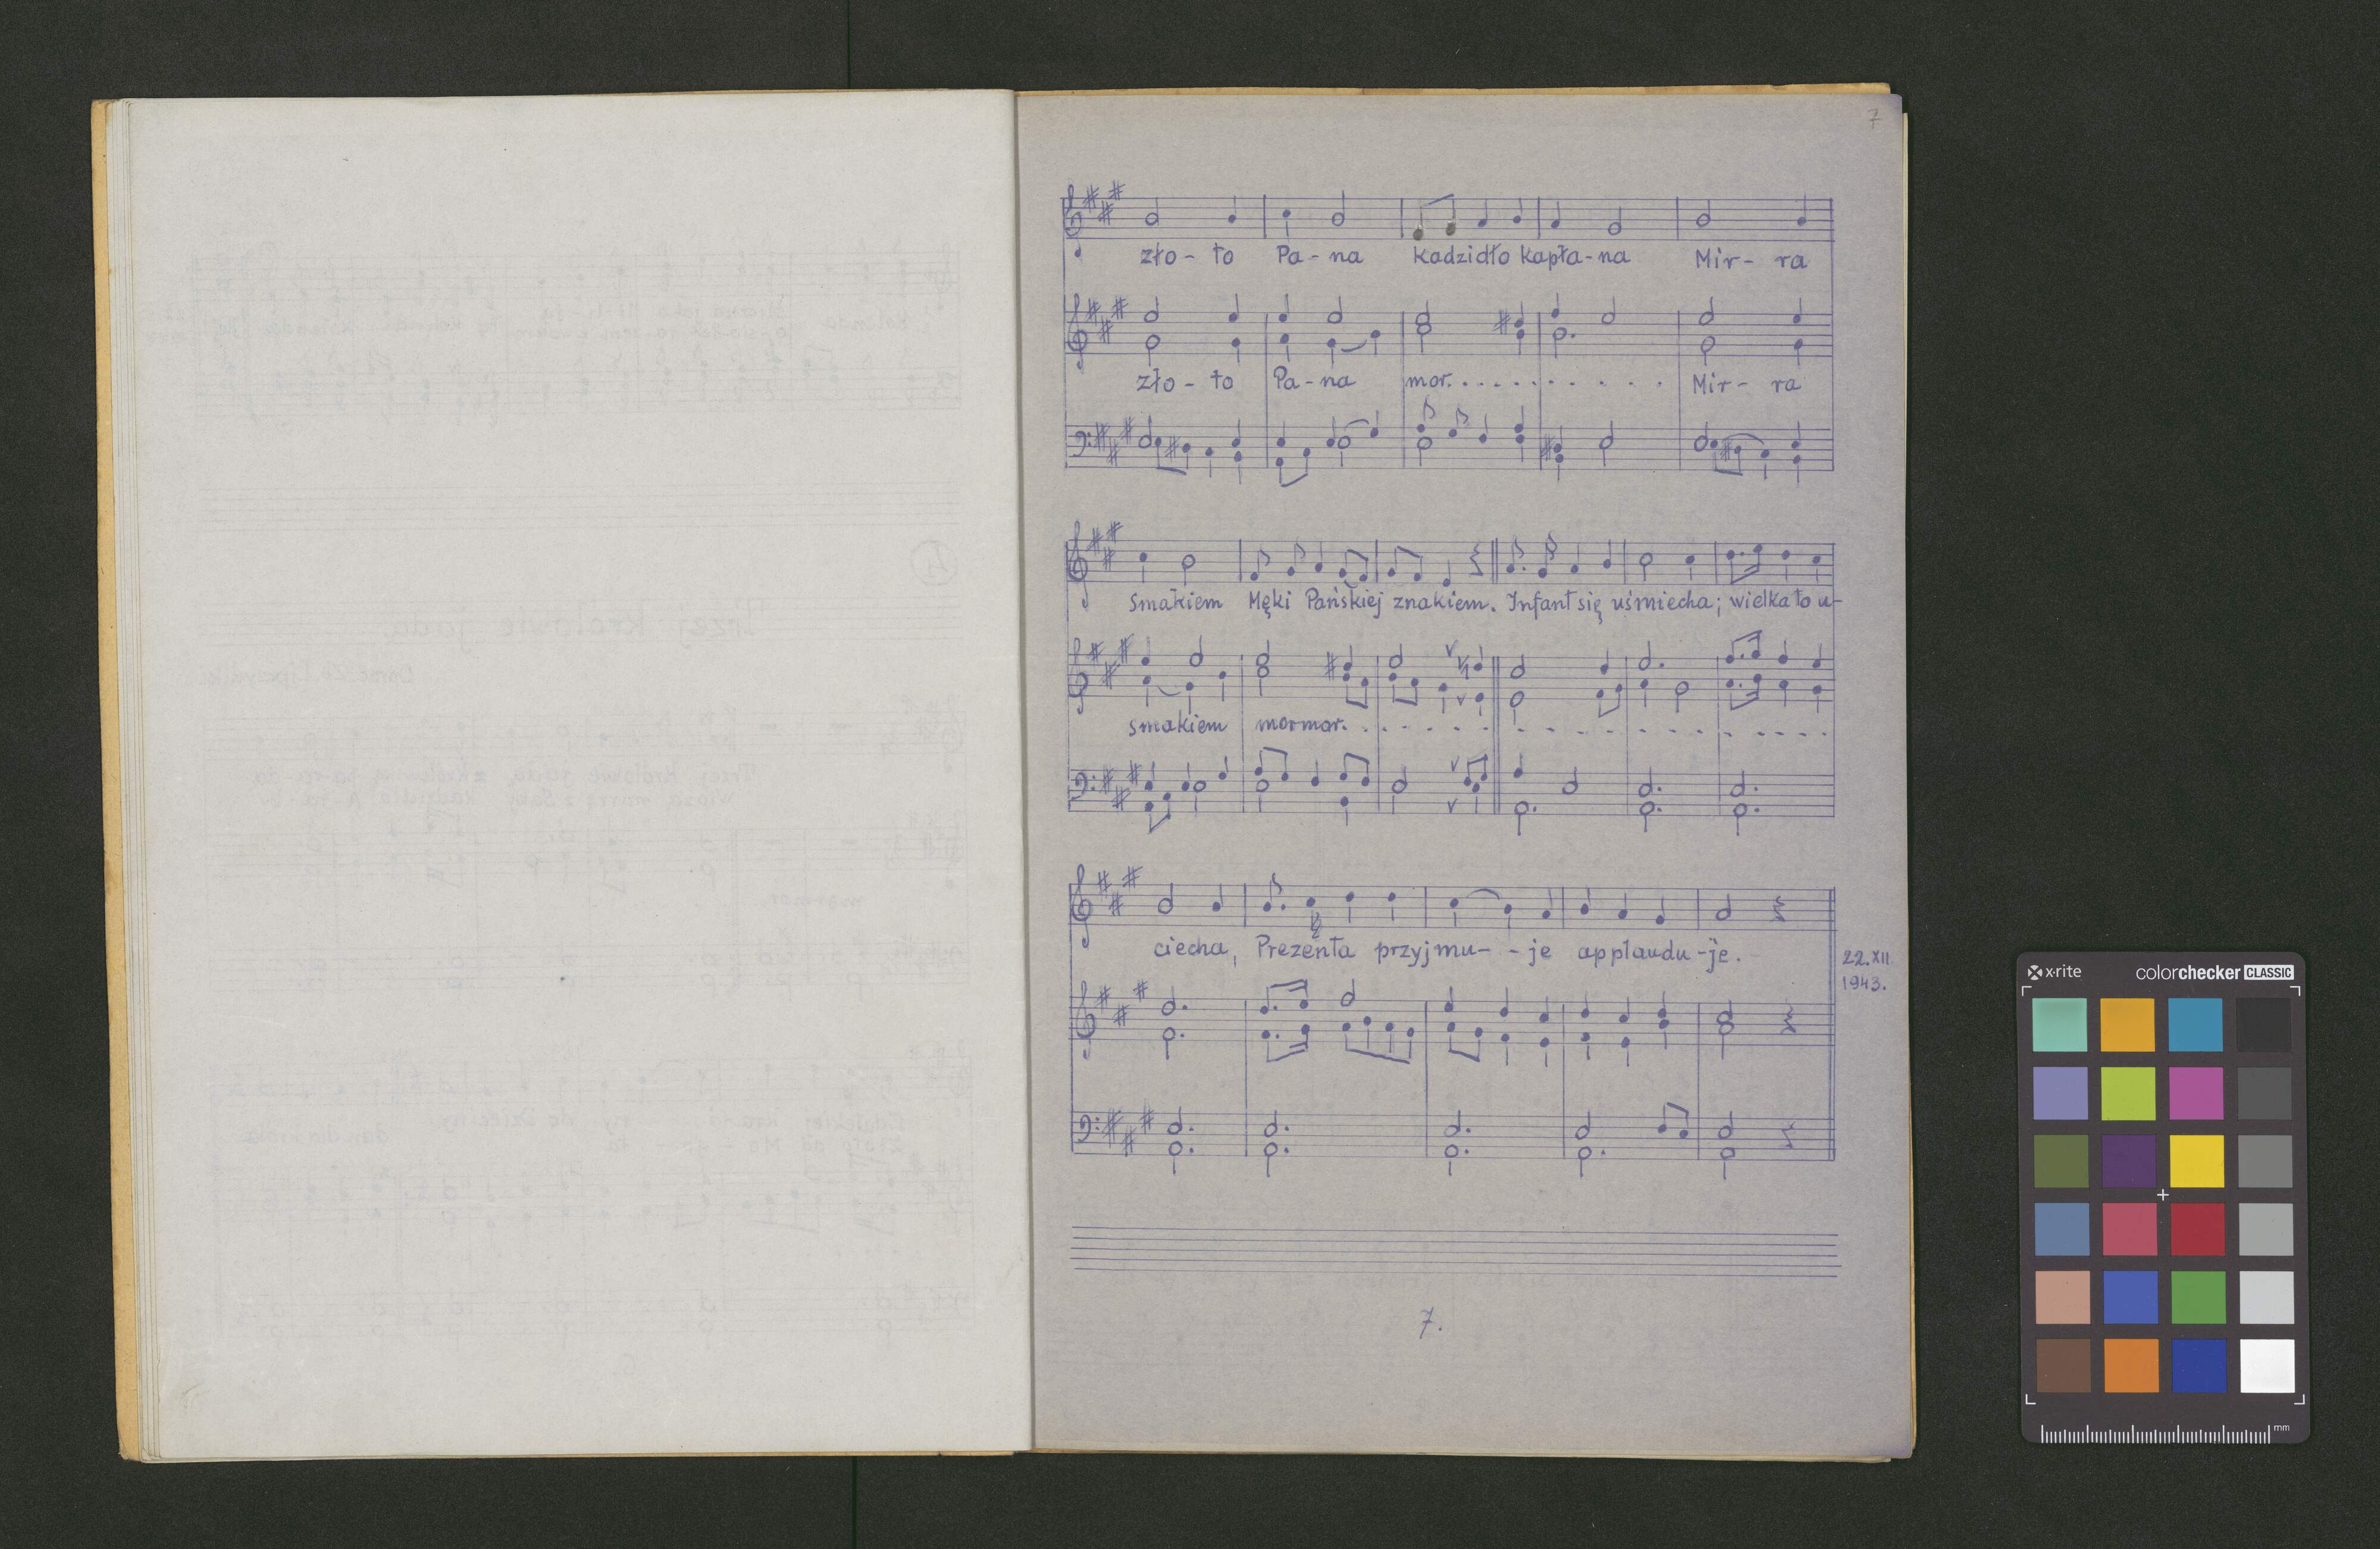 7
zło - to Pa - na kadzidło kapła - na Mir - ra
zło - to Pa - na mor. . . . . . . . . . . . Mir - ra
smakiem Męki Pańskiej znakiem. Infant się uśmiecha; wielka to u-
smakiem mormor. . . . . . . . . . . . . . . .
ciecha, Prezenta przyjmu - - je applaudu - je.
22.XII
1943.
7.
x-rite colorchecker CLASSIC
mm